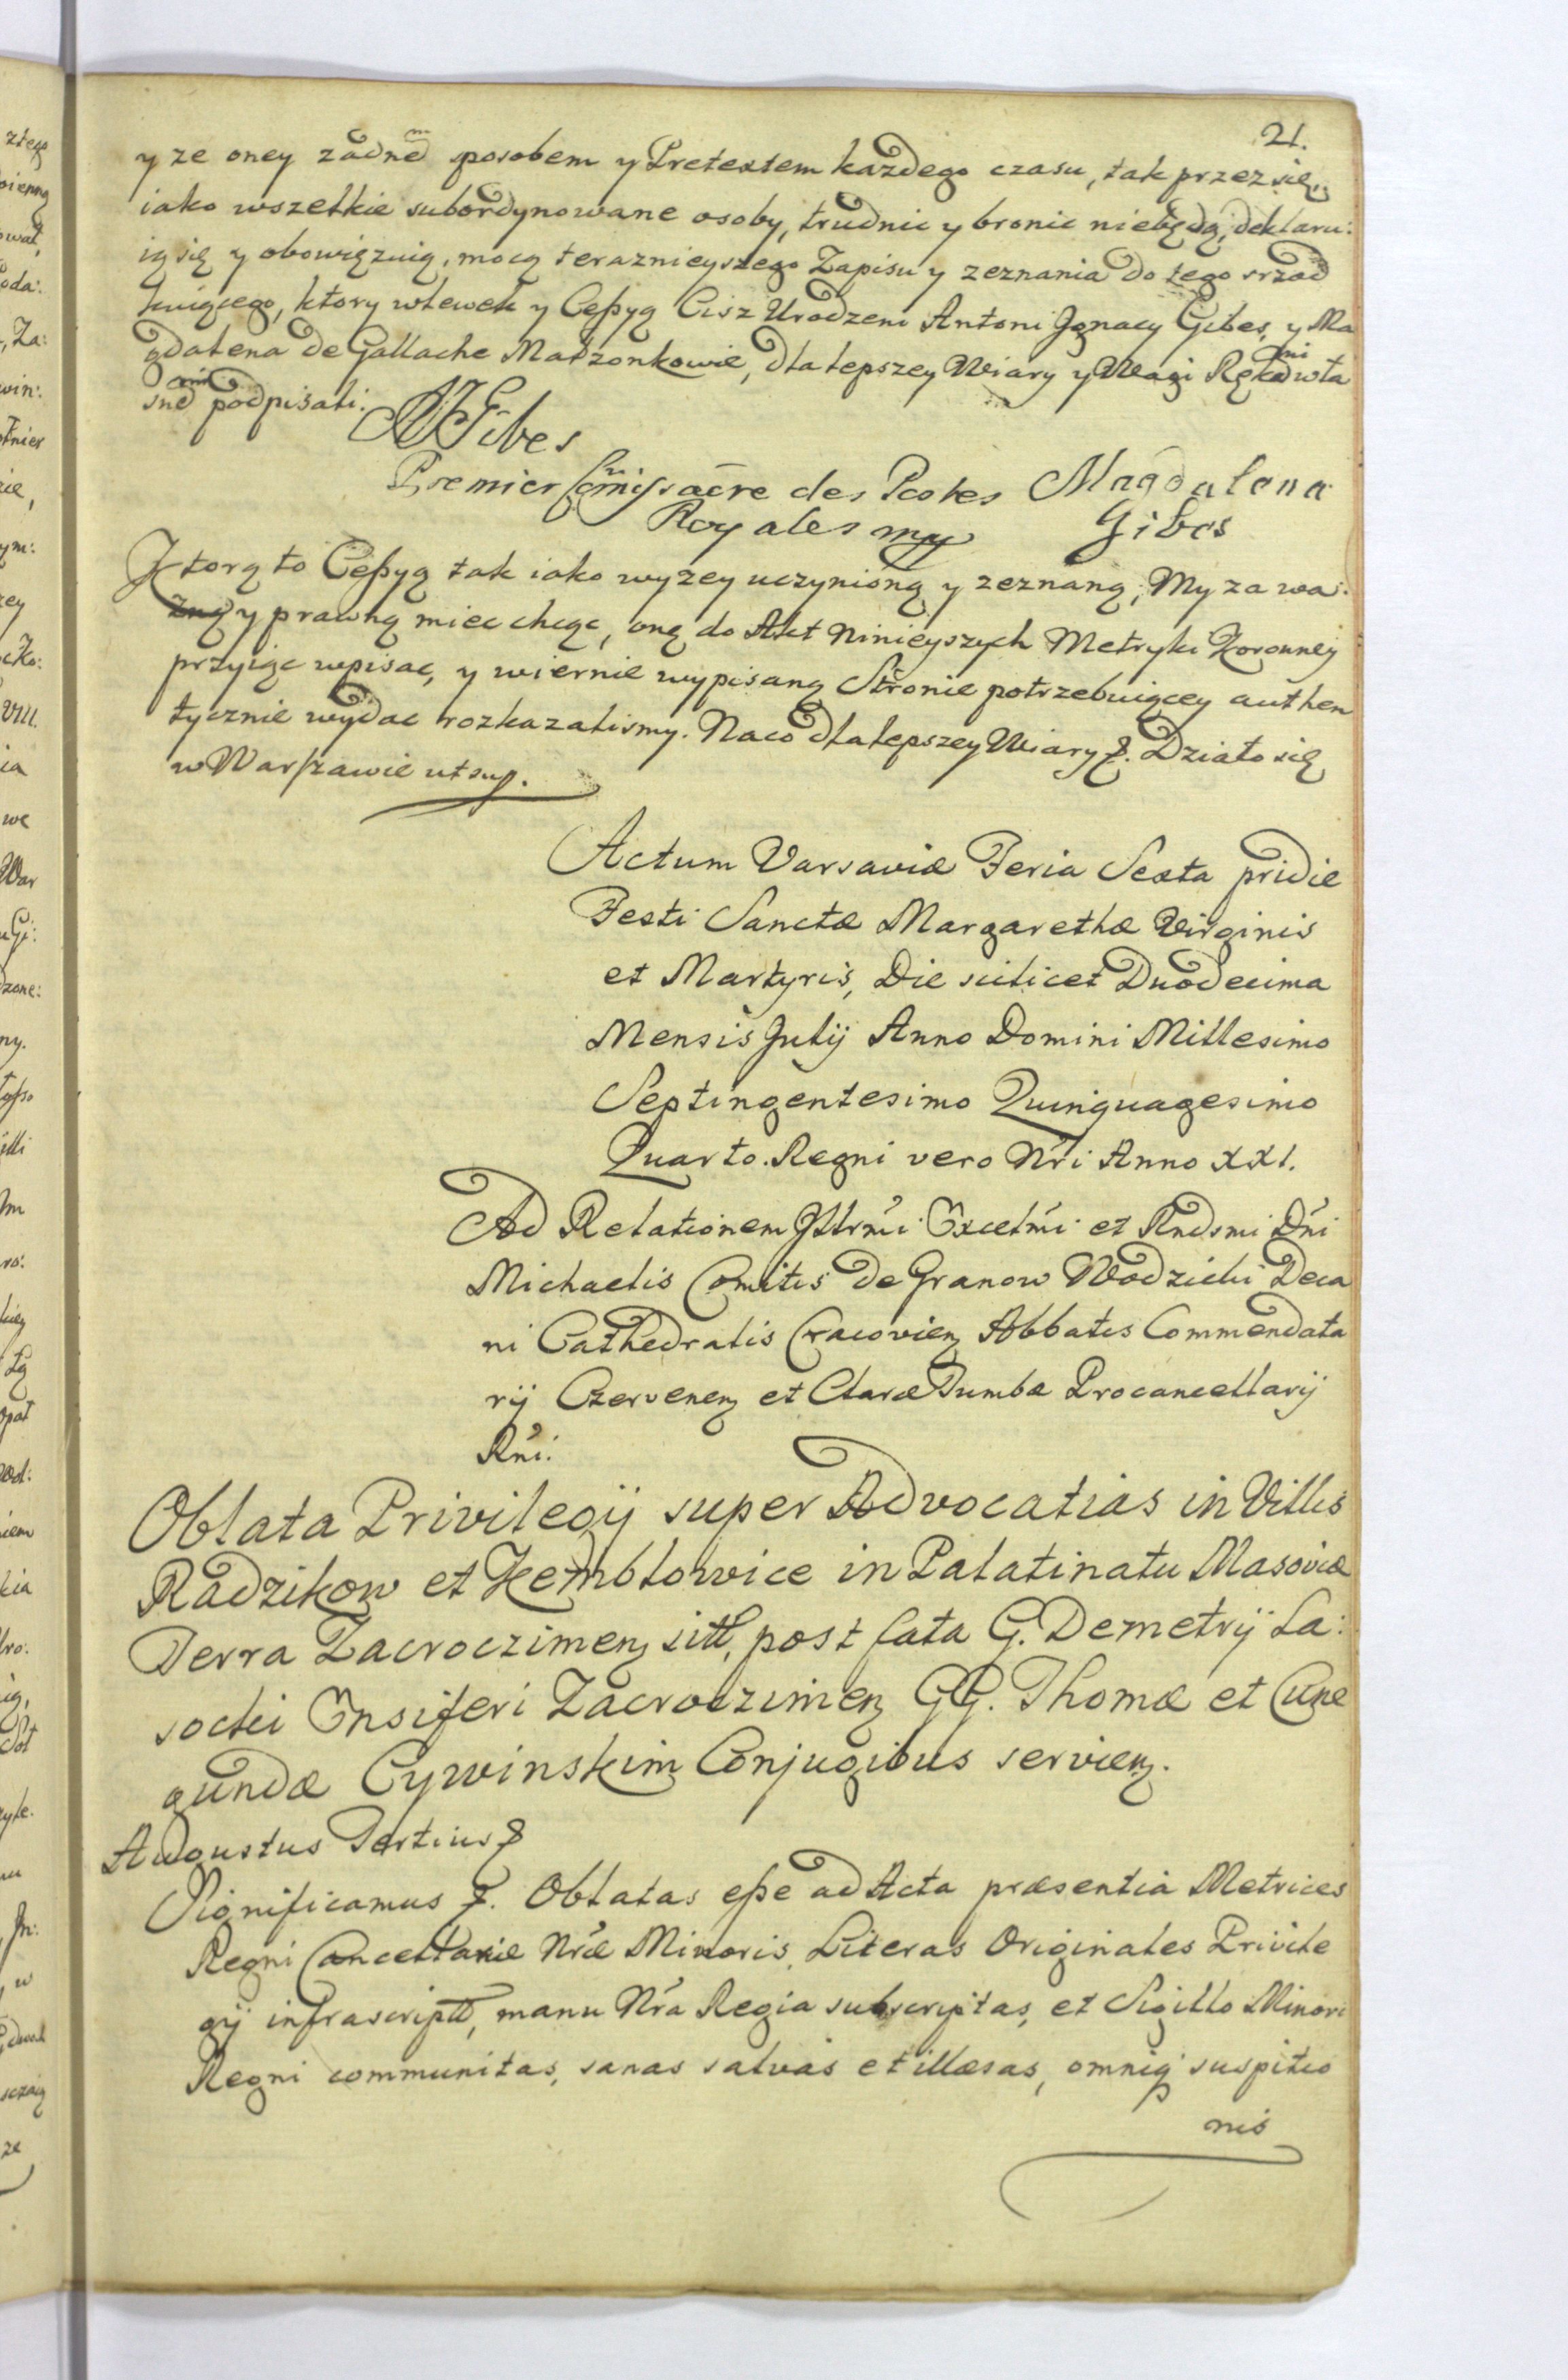 21.
y ze oney zadnem sposobem y Pretextem kazdego czasu, tak przez się,
iako wszelkie subordynowane osoby, trudnic y bronic niebędą, deklaru:
ią się y obowięzuią, mocą teraznieyszego Zapisu y zeznania do tego srzod
kuiącego, ktory wlewek y Ceßyą Cisz Urodzeni Antoni Jgnacy Gibes, y Ma
gdalena de Gallache Małzonkowie, dla lepszey Wiary y Wagi Rękami wła
snemi podpisali.
AJGibes
Premier Commissaire des Postes Magdalena
Royales mp Gibes
Ktorą to Ceßyą tak iako wyzey uczynioną y zeznaną, My za wa:
zną y prawną miec chcąc, oną do Akt Ninieyszych Metryki Koronney
przyiąc wpisac, y wiernie wypisaną Stronie potrzebuiącey authen
tycznie wydac rozkazalismy. Naco dla lepszey Wiary &. Działo się
w Warszawie ut sup.
Actum Varsaviæ Feria Sexta pridie
Festi Sanctæ Margarethæ Virginis
et Martyris, Die scilicet Duodecima
Mensis Julij Anno Domini Millesimo
Septingentesimo Quinquagesimo
Quarto. Regni vero Nri Anno XXI.
Ad Relationem Jllrmi Excelmi et Rndsmi Dni
Michaelis Comitis de Granow Wodzicki Deca
ni Cathedralis Cracovien Abbatis Commendata
rij Czervenen et Claræ Tumbæ Procancellarij
Rni.
Oblata Privilegij super Advocatias in Villis
Radzikow et Kembłowice in Palatinatu Masoviæ
Terra Zacroczimen sitt, post fata G. Demetrij La:
socki Ensiferi Zacroczimen GG. Thomæ et Cune
gundæ Cywinskim Conjugibus servien.
Augustus Tertius &
Significamus &. Oblatas eße ad Acta præsentia Metrices
Regni Cancellariæ Nræ Minoris, Literas Originales Privile
gij infrascriptt, manu Nra Regia subscriptas, et Sigillo Minori
Regni communitas, sanas salvas et illæsas, omniq suspitio
nis